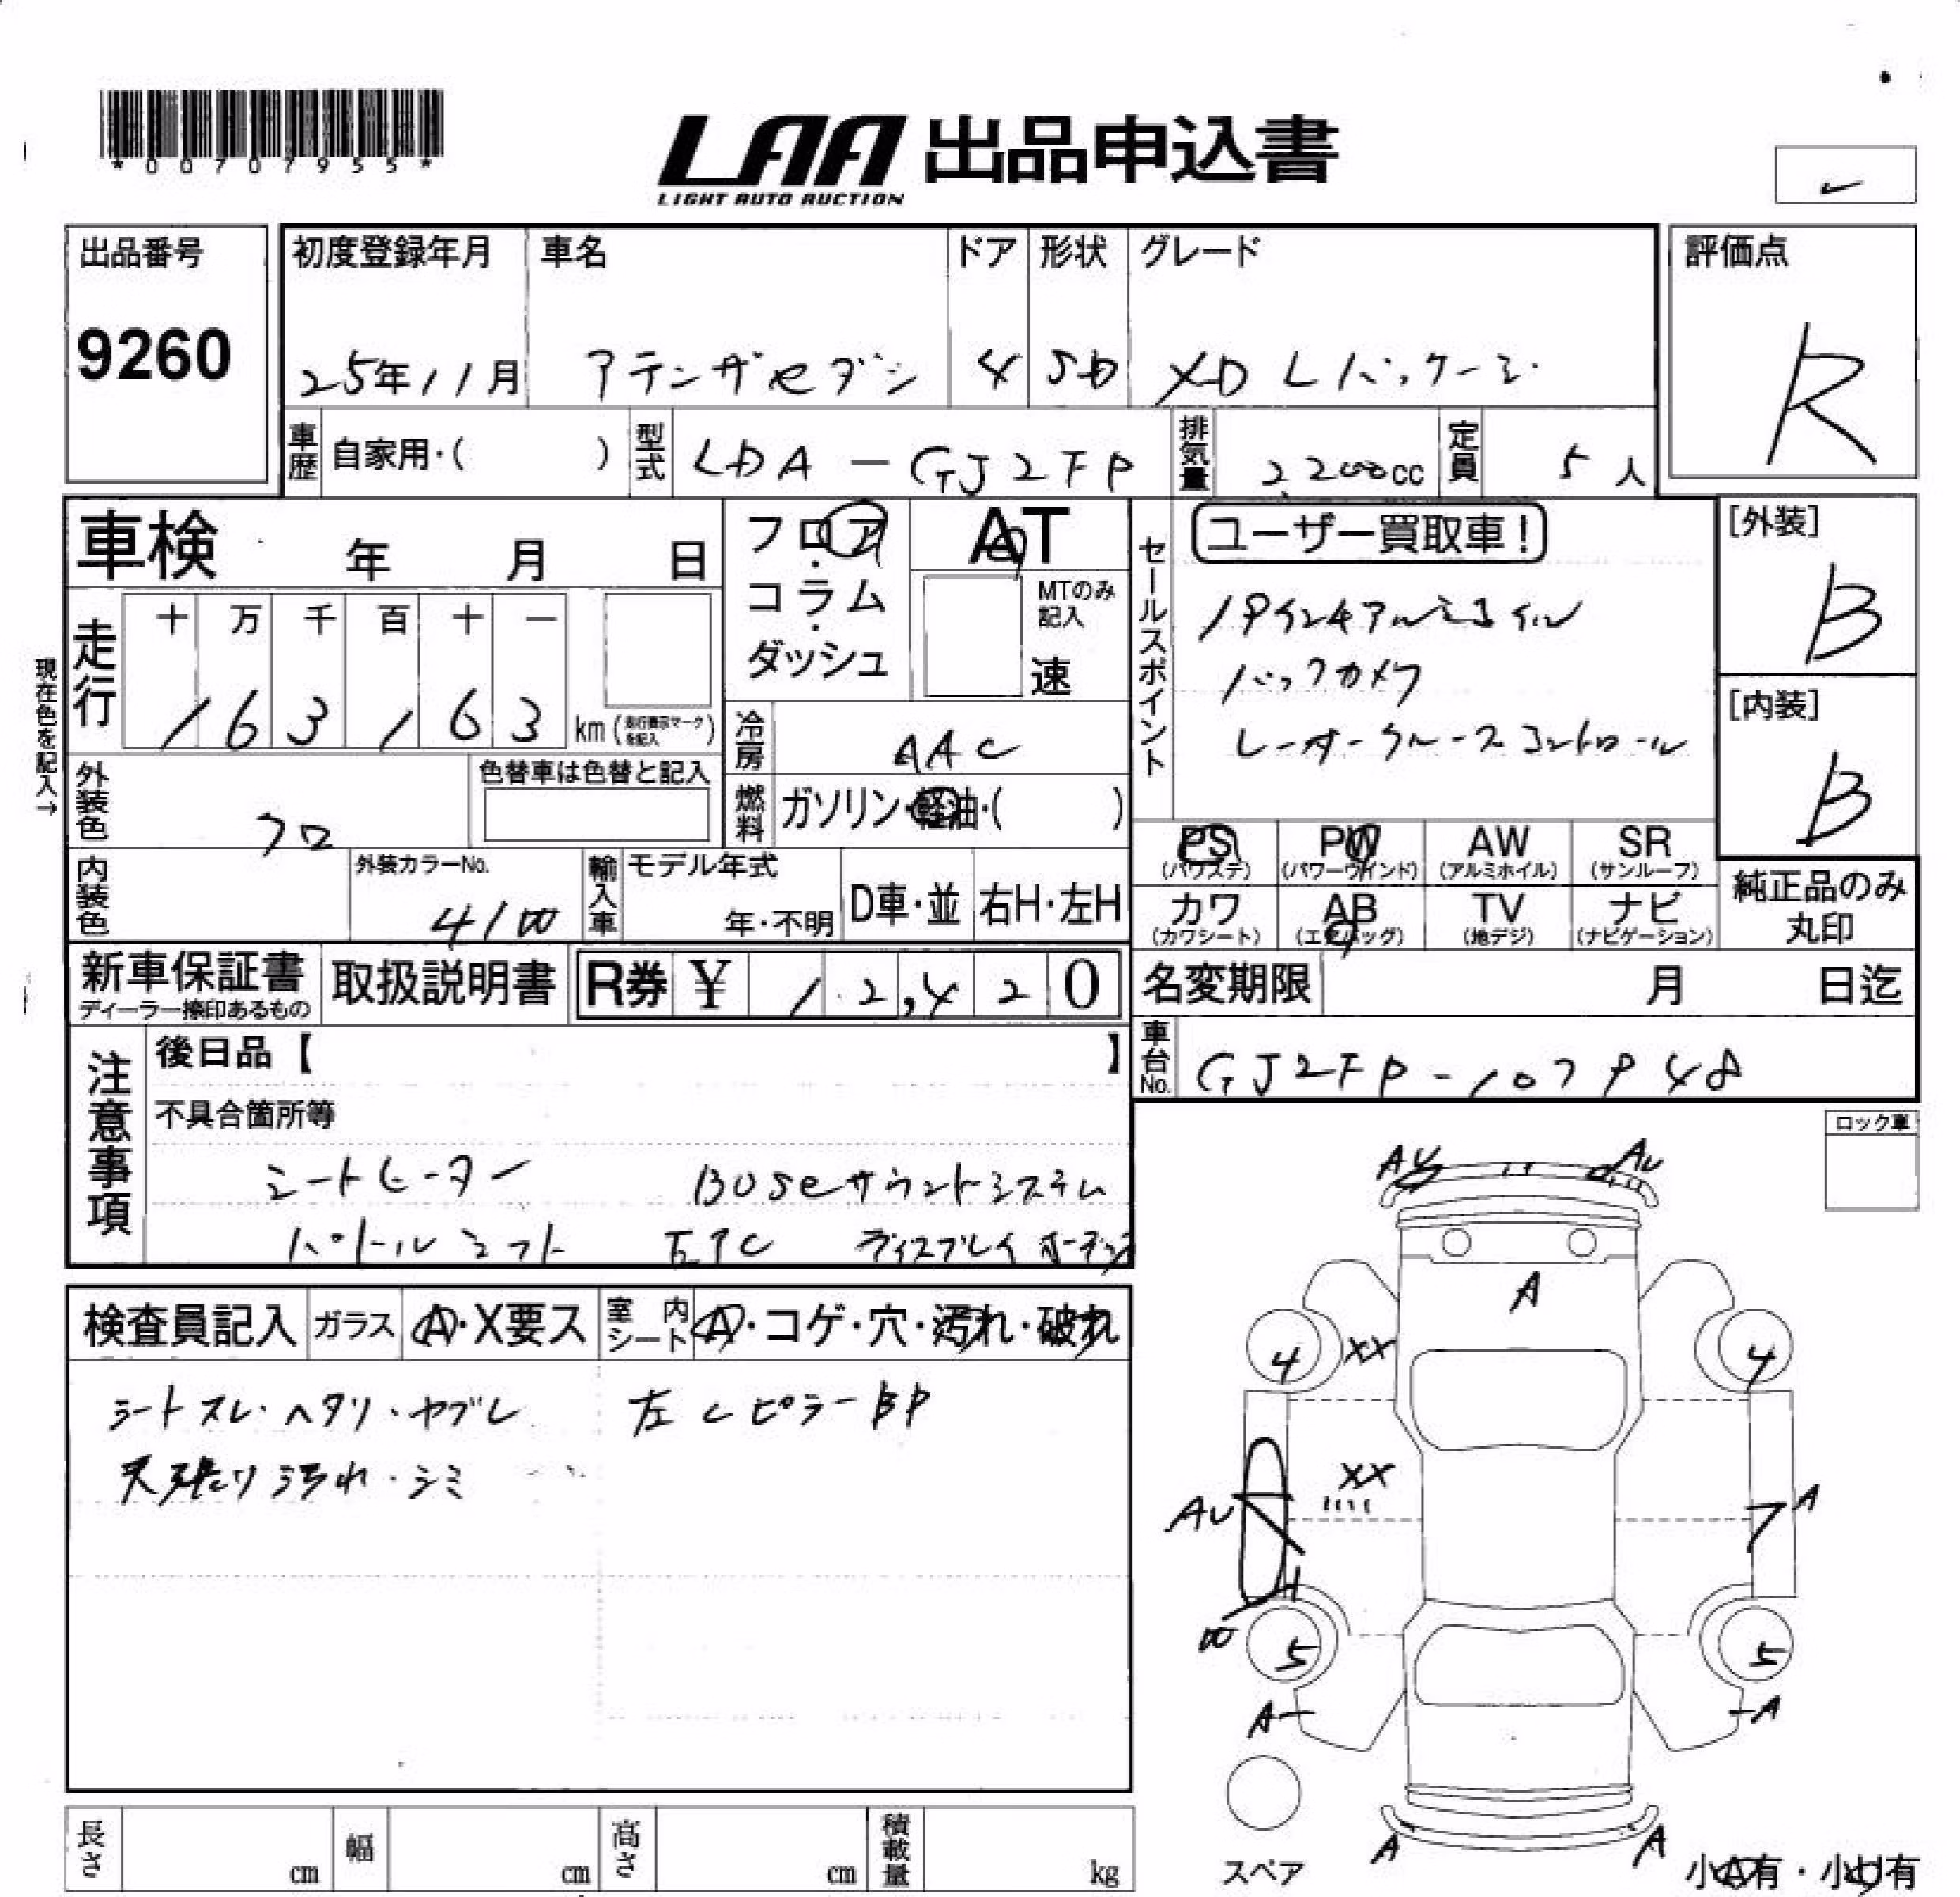 *00707955*
LAA 出品申込書
LIGHT AUTO AUCTION
出品番号
9260
初度登録年月
25年11月
車名
アテンザセダン
ドア
4
形状
SD
グレード
XD Lパッケージ
評価点
R
車歴 自家用・( )
型式 LDA-GJ2FP
排気量 2200cc
定員 5人
車検 年 月 日
フロア・コラム・ダッシュ
AT
MTのみ記入
速
セールスポイント
ユーザー買取車!
19インチアルミホイル
バックカメラ
レーダークルーズコントロール
[外装]
B
[内装]
B
現在色を記入→
走行
十 万 千 百 十 一
1 6 3 1 6 3 km(走行表示マークを記入)
冷房 AAC
燃料 ガソリン・軽油・( )
外装色 クロ
色替車は色替と記入
内装色
外装カラーNo.
41W
輸入車
モデル年式
年・不明
D車・並
右H・左H
PS
(パワステ)
PW
(パワーウインド)
AW
(アルミホイル)
SR
(サンルーフ)
カワ
(カワシート)
AB
(エアバッグ)
TV
(地デジ)
ナビ
(ナビゲーション)
純正品のみ丸印
新車保証書
ディーラー捺印あるもの
取扱説明書
R券 ¥ 12,420
名変期限 月 日迄
車台No. GJ2FP-107948
注意事項
後日品【 】
不具合箇所等
シートヒーター BOSEサウンドシステム
パドルシフト ETC ディスプレイオーデジ
ロック車
検査員記入
ガラス A・X要ス
室内シート A・コゲ・穴・汚れ・破れ
シートスレ・ヘタリ・ヤブレ
天張り汚れ・シミ
左Cピラー BP
AU
AU
A
4
XX
4
XX
AU
A
W
5
5
A
A
A
A
スペア
小A有・小U有
長さ cm
幅 cm
高さ cm
積載量 kg